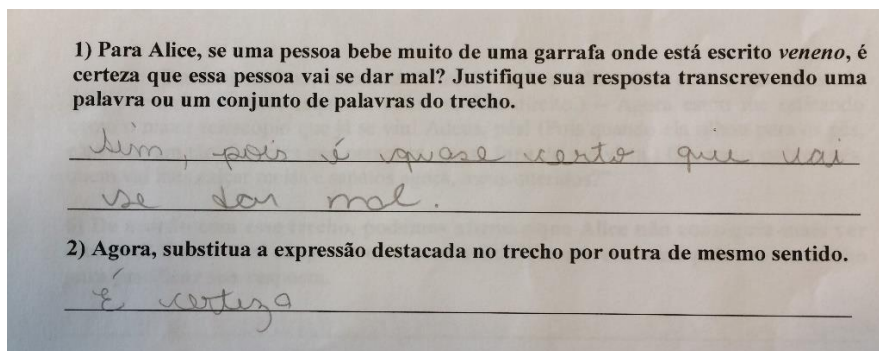 1) Para Alice, se uma pessoa bebe muito de uma garrafa onde está escrito veneno, é
certeza que essa pessoa vai se dar mal? Justifique sua resposta transcrevendo uma
palavra ou um conjunto de palavras do trecho.
Sim, pois é quase certo que vai
se dar mal.
2) Agora, substitua a expressão destacada no trecho por outra de mesmo sentido.
É certeza